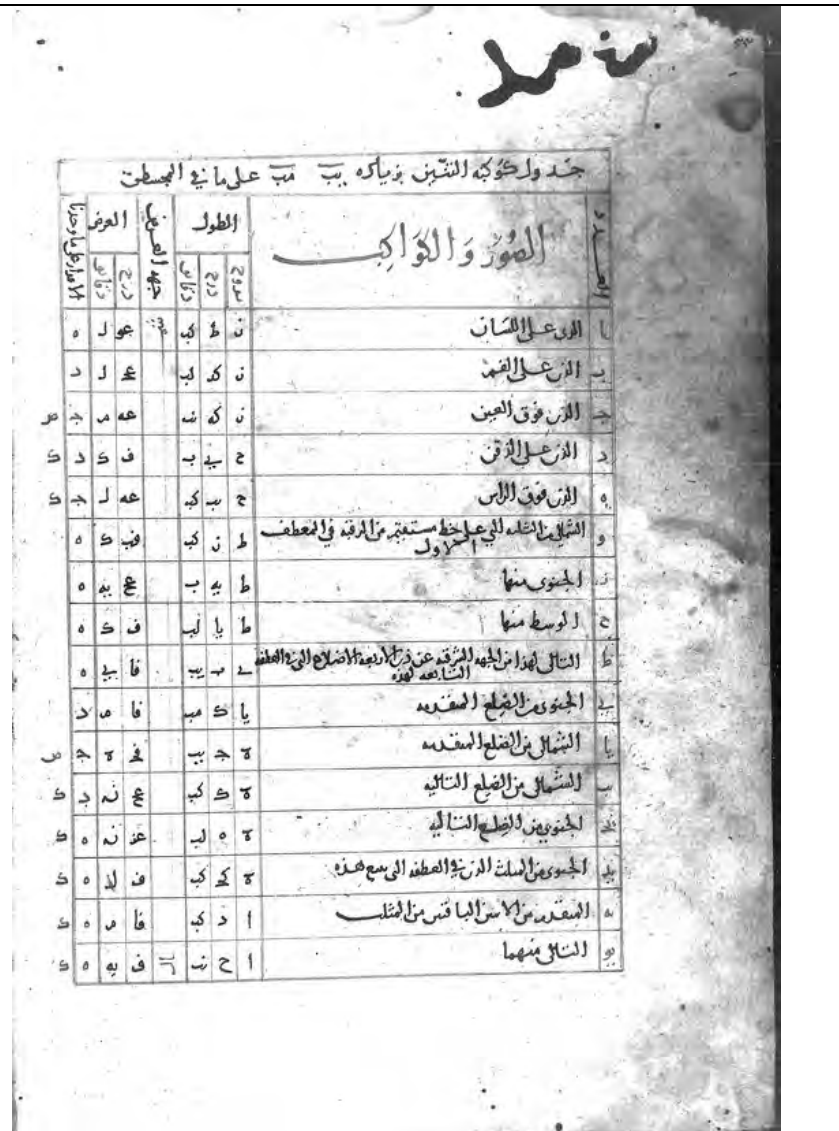 جدول كوكبه التنين بزياده يب مب على ما في المجسطي
العدد الصور والكواكب الطول جهه العرض العرض الاقدار على ما وجدنا
بروج درج دقائق درج دقائق
ا الذى على اللسان ز ط كب عو ل ه
ب الذى على الفم ز كد لب عح ل د
ج الذى فوق العين ز كه نب عه م ج ص
د الذى على الذقن ح ى ب ف ك د ك
ه الذى فوق الراس ح يب كب عه ل ج ك
و الشمالى من الثلثه التي على خط مستقيم من الرقبه في المعطف الاول ط ز كب فب ك ه
ز الجنوبى منها ط يه ب عح يه ه
ح الوسط منها ط يا لب ف ك ه
ط التالى لهذا من الجهه الشرقيه فا ى ه
ى الجنوبى من الضلع المتقدمه يا ك مب فا م د
يا الشمالى من الضلع المتقدمه ج يب ج ص
يب الشمالى من الضلع التاليه ك كب عح ن د ك
يج الجنوبى من الضلع التاليه ه لب عز ن ه ك
يد الجنوبى من المثلث الذى في العطفه التى تتبع هذه كج كب ف ه ك
يه المتقدم من الاثنين الباقيين من المثلث ا د كب فا م ه ك
يو التالى منهما ا ح نب ف يه ه ك